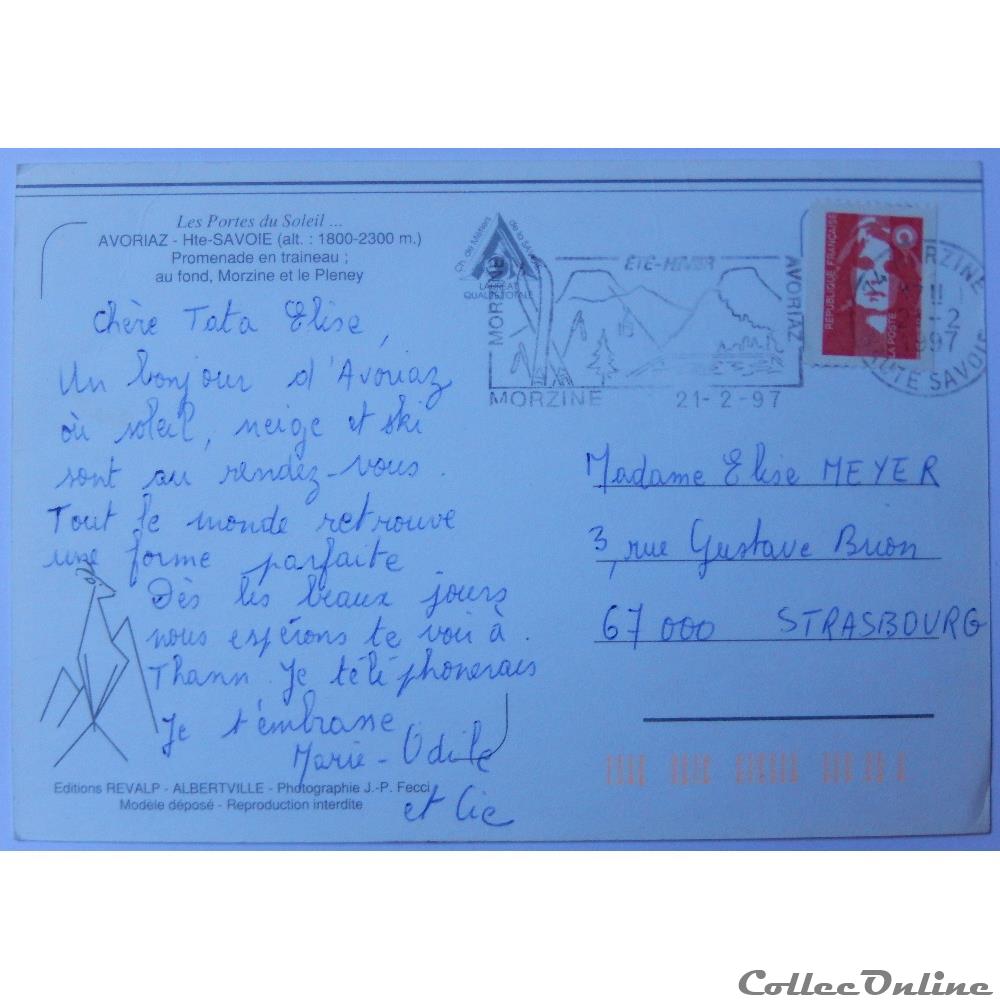 Les Portes du Soleil ...
AVORIAZ - Hte-SAVOIE (alt. : 1800-2300 m.)
Promenade en traineau ;
au fond, Morzine et le Pleney
Chère Tata Elise,
Un bonjour d'Avoriaz
où soleil, neige et ski
sont au rendez-vous.
Tout le monde retrouve
une forme parfaite
Dès les beaux jours
nous espérons te voir à
Thann. Je téléphonerais
Je t'embrasse
Marie-Odile
et Cie
Editions REVALP - ALBERTVILLE - Photographie J.-P. Fecci
Modèle déposé - Reproduction interdite
Ch. de Métiers de la SAVOIE
LAUREAT
QUALITE TOTALE
MORZINE
ETE-HIVER
AVORIAZ
MORZINE 21-2-97
REPUBLIQUE FRANÇAISE
LA POSTE
MORZINE
-2
1997
HAUTE SAVOIE
Madame Elise MEYER
3, rue Gustave Buon
67 000 STRASBOURG
CollecOnline